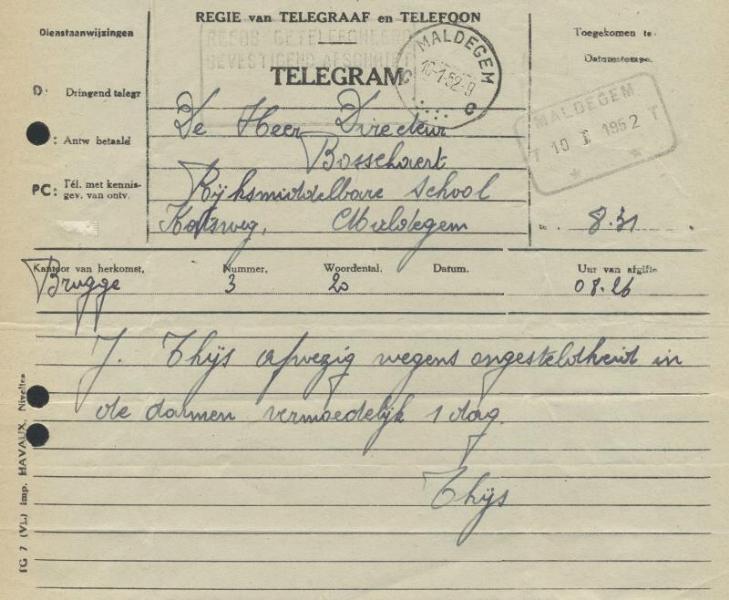 REGIE van TELEGRAAF en TELEFOON
Dienstaanwijzingen
REEDS GETELEFONEERD
BEVESTIGEND AFSCHRIFT
MALDEGEM
10-1-52-9
C C
Toegekomen te
Datumstempe.
TELEGRAM
D: Dringend telegr
De Heer Directeur
MALDEGEM
T 10 I 1952 T
: Antw betaald
Bosschaert
PC: Tél. met kennis-
gev. van ontv.
Rijksmiddelbare School
Katsweg, Maldegem
8.31
Kantoor van herkomst, Nummer, Woordental. Datum. Uur van afgifte
Brugge 3 20 08.26
J. Thijs afwezig wegens ongesteldheid in
de darmen vermoedelijk 1 dag.
Thijs
TG 7 (VL) imp. HAVAUX, Nivelles